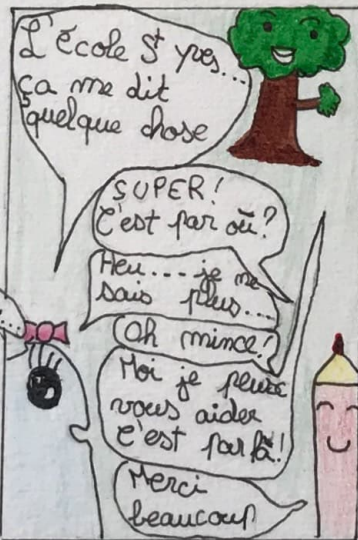 L'école St yves....
ça me dit
quelque chose
SUPER!
C'est par où?
Heu.... je ne
sais plus....
Oh mince!
Moi je peux
vous aider
C'est par là!
Merci
beaucoup